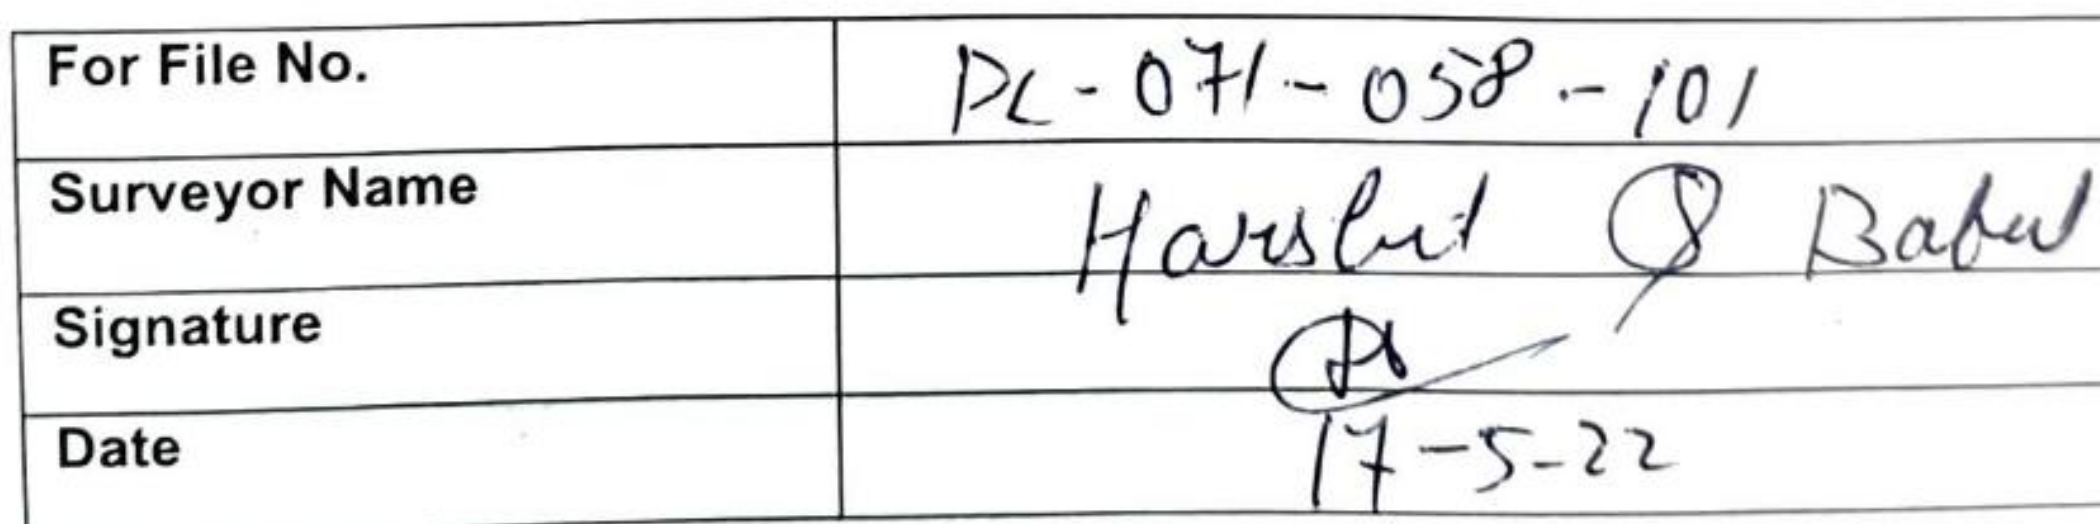 For File No. PL-071-058-101
Surveyor Name Harshit & Babul
Signature
Date 17-5-22